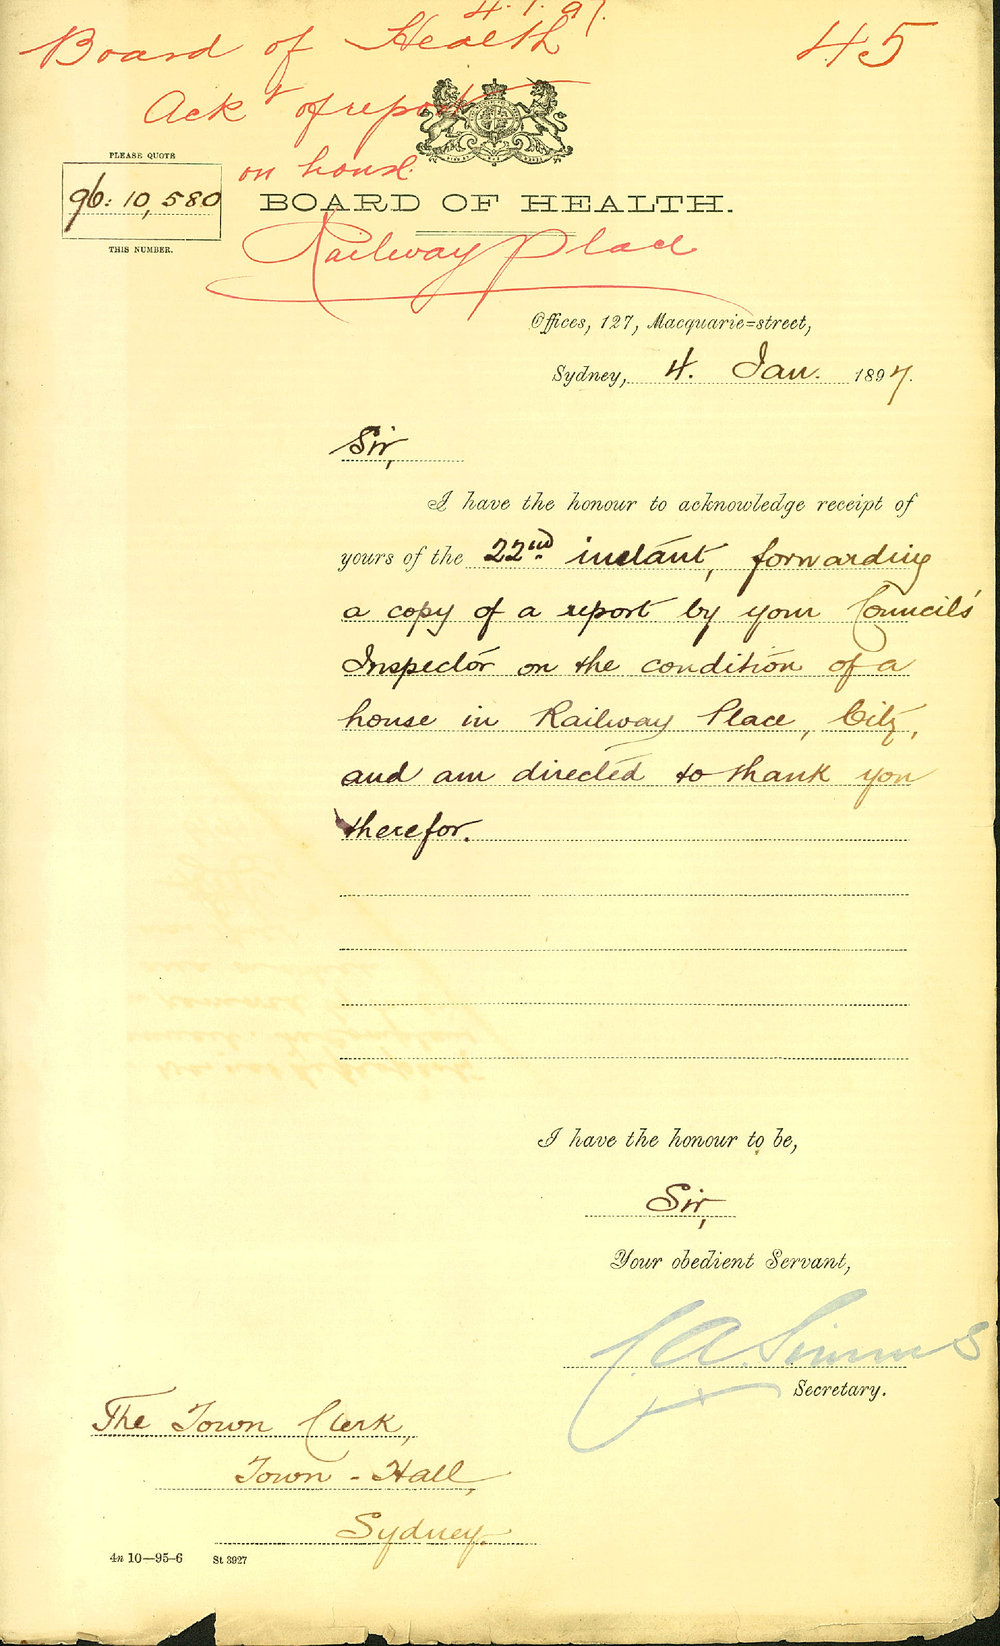 4.1.97.
Board of Health
45
Ackt of report
on house
Railway Place
PLEASE QUOTE
96: 10,580
THIS NUMBER.
BOARD OF HEALTH.
Offices, 127, Macquarie=street,
Sydney, 4. Jan. 1897.
Sir,
I have the honour to acknowledge receipt of
yours of the 22nd instant, forwarding
a copy of a report by your Council's
Inspector on the condition of a
house in Railway Place, City,
and am directed to thank you
therefor.
I have the honour to be,
Sir,
Your obedient Servant,
C A. Simms
Secretary.
The Town Clerk,
Town - Hall,
Sydney.
4n 10—95—6 St 3927